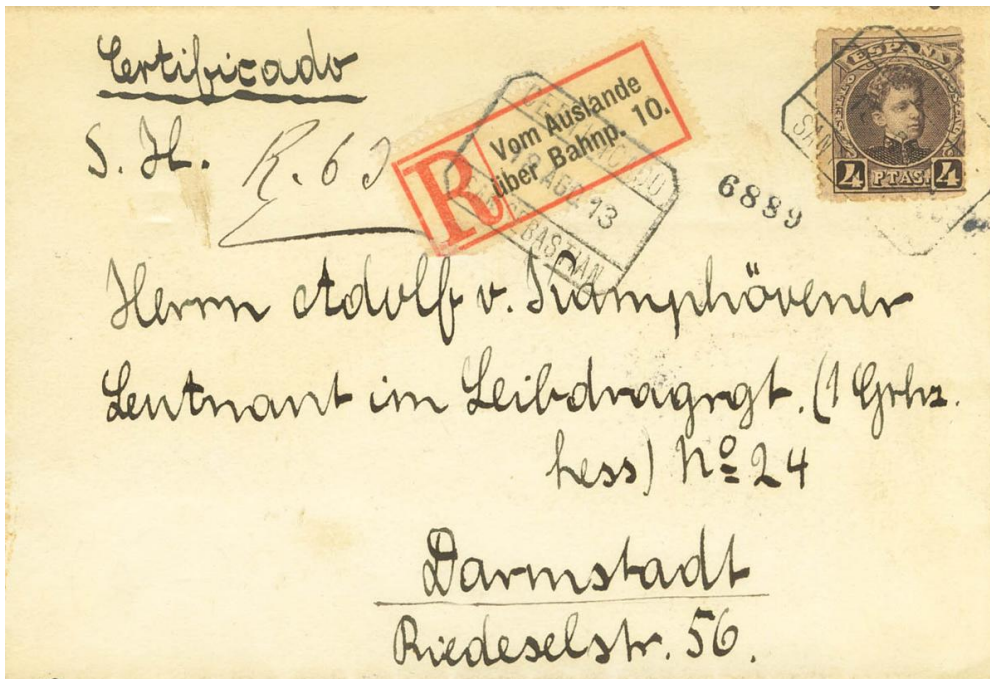 Certificado
S. H.
R. 6
R
Vom Auslande
über Bahnp. 10.
AGO 13
SAN SEBASTIAN
6889
ESPAÑA
4 PTAS. 4
Herrn Adolf v. Kamphövener
Leutnant im Leibdragrgt. (1 Grhz.
hess) No 24
Darmstadt
Riedeselstr. 56.